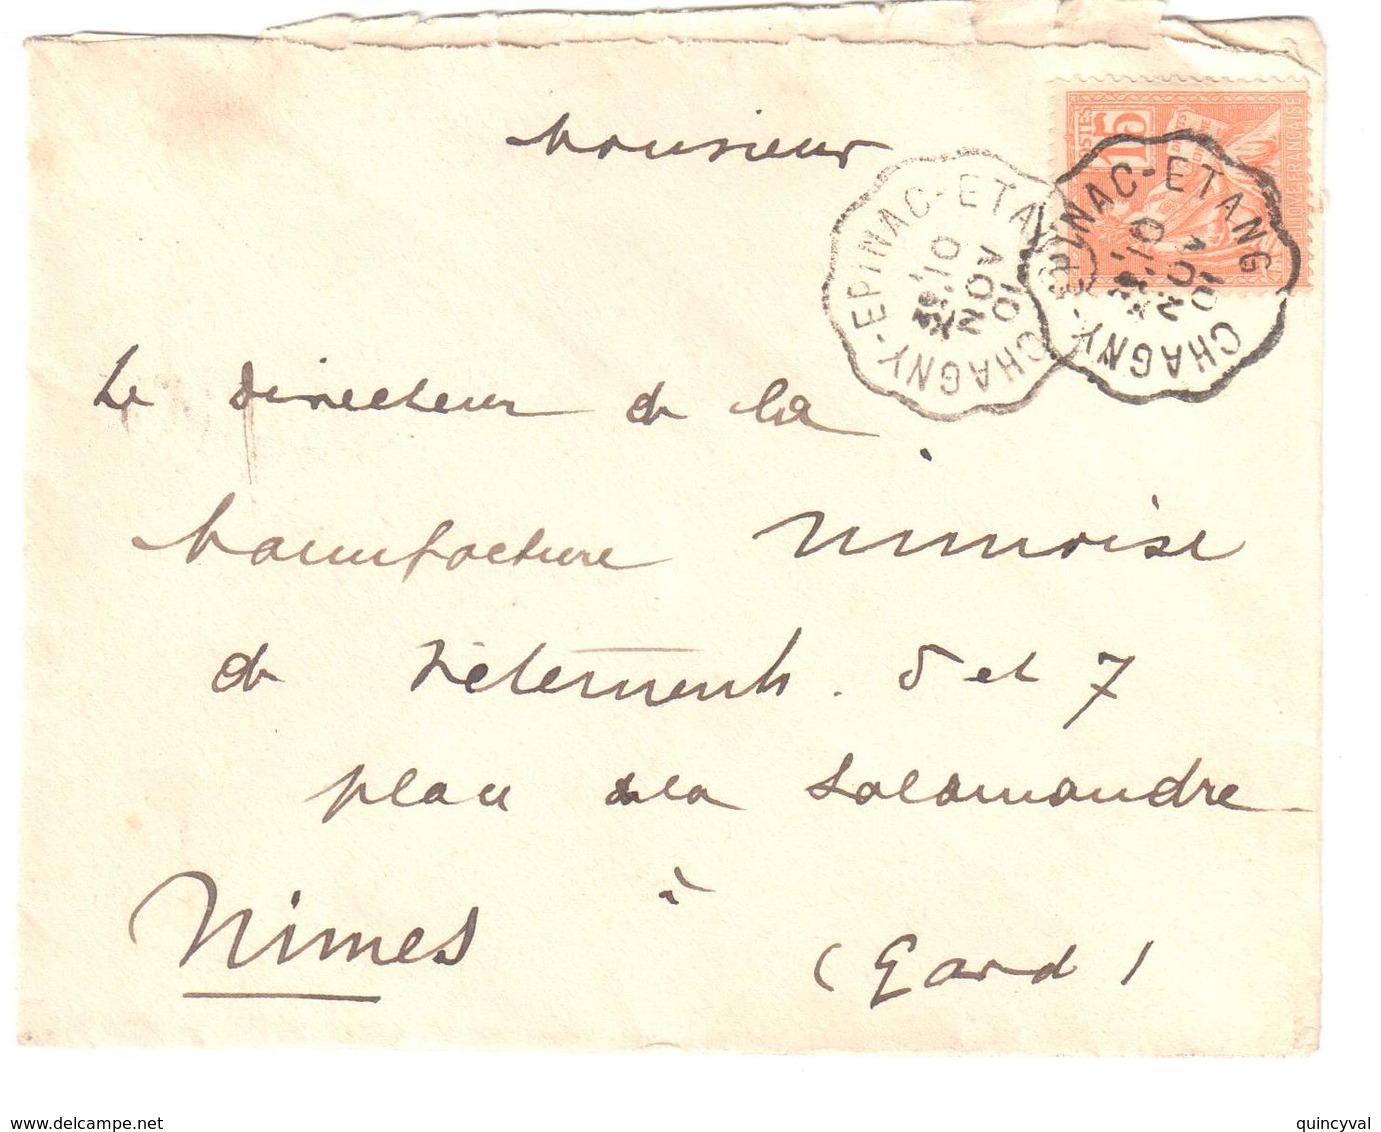 Monsieur
POSTES
15
CHAGNY-EPINAC-ETANG
CHAGNY-EPINAC-ETANG
10
NOV
10
NOV
Le Directeur de la
Manufacture Nimoise
de Vêtements. 5 et 7
place de la Salamandre
Nimes à (Gard)
delcampe.net
quincyval